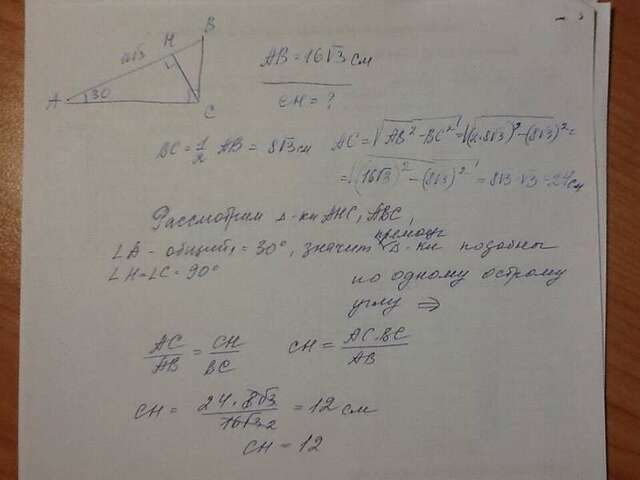 B
H
16√3
A 30 C
AB = 16√3 см
CH = ?
BC = 1/2 AB = 8√3 см AC = √(AB² - BC²) = √((2·8√3)² - (8√3)²) =
= √((16√3)² - (8√3)²) = 8√3·√3 = 24 см
Рассмотрим Δ-ки AHC, ABC,
прямоуг
∠A - общий, = 30°, значит Δ-ки подобны
∠H = ∠C = 90° по одному острому
углу ⇒
AC/AB = CH/BC CH = AC·BC/AB
CH = 24·8√3/16√3 2 = 12 см
CH = 12